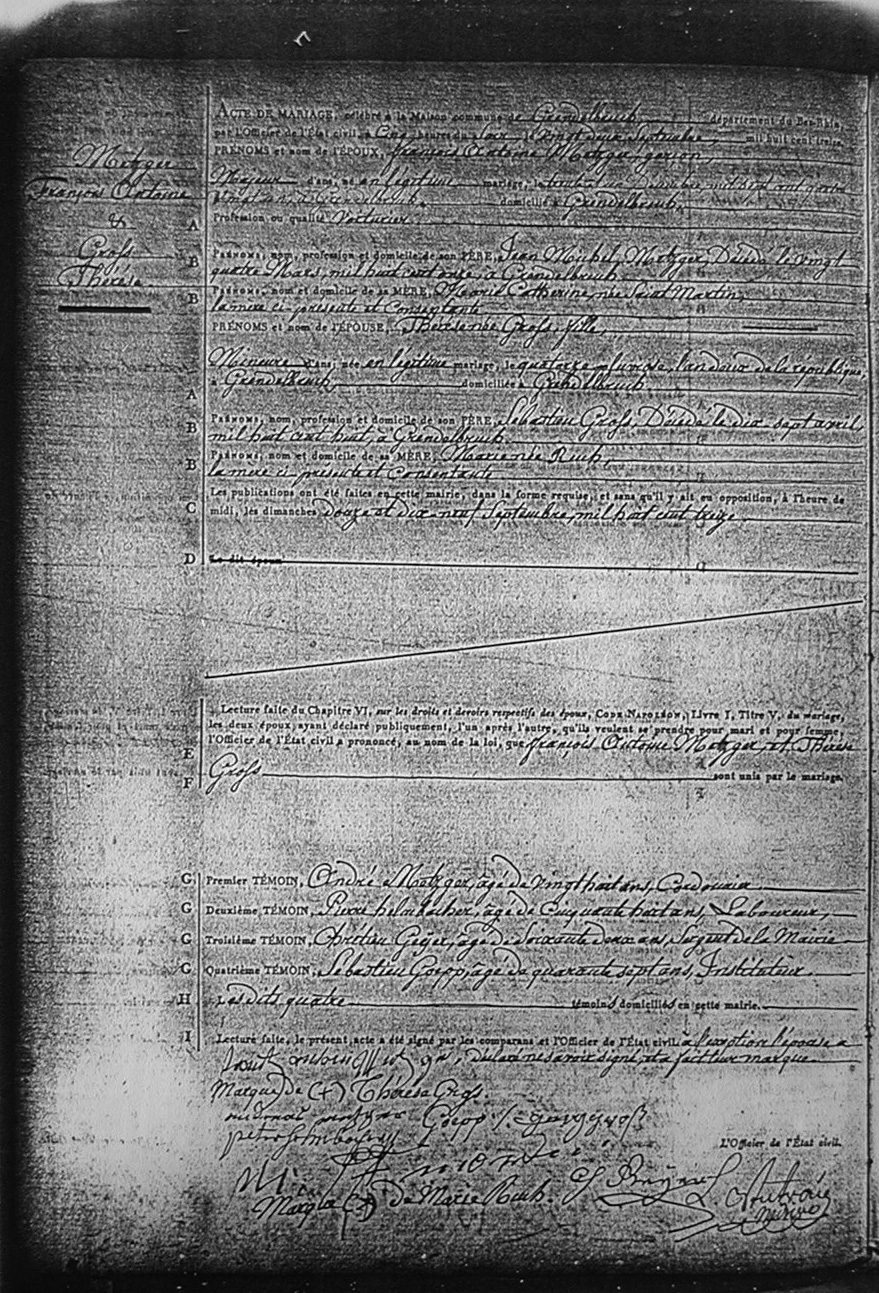 ACTE DE MARIAGE, célébré à la Maison commune de Grendelbruch département du Bas-Rhin,
par l'Officier de l'État civil, à Cinq heures du soir le vingt deux Septembre, mil huit cent treize.
Metzger
PRÉNOMS et nom de l'ÉPOUX, françois Antoine Metzger, garçon,
François Antoine
Majeur d'ans, né en légitime mariage, le mil sept cent quatre
vingt un, à Grendelbruch, domicilié à Grendelbruch,
&
A Profession ou qualité Voiturier
Gross
B PRÉNOMS, nom, profession et domicile de son PÈRE, Jean Michel, Metzger, Décédé le vingt
quatre Mars, mil huit cent onze, à Grendelbruch
Thérèse
B PRÉNOMS, nom et domicile de sa MÈRE, Marie Catherine, née Saint Martin,
la mere ci-présente et Consentante
PRÉNOMS et nom de l'ÉPOUSE, Thérèse née Gross, fille,
Mineure d'ans, née en légitime mariage, le quatorze pluviose, l'an douze de la république,
A à Grendelbruch, domiciliée à Grendelbruch
B PRÉNOMS, nom, profession et domicile de son PÈRE, Sébastien Gross, Décédé le dix-sept avril,
mil huit cent huit, à Grendelbruch
B PRÉNOMS, nom et domicile de sa MÈRE, Marie née Ruch,
la mere ci présente et Consentante
Les publications ont été faites en cette mairie, dans la forme requise, et sans qu'il y ait eu opposition, à l'heure de
C midi, les dimanches Douze et dix neuf Septembre, mil huit cent treize
D
Lecture faite du Chapitre VI, sur les droits et devoirs respectifs des époux, CODE NAPOLÉON, Livre I, Titre V, du mariage,
les deux époux ayant déclaré publiquement, l'un après l'autre, qu'ils veulent se prendre pour mari et pour femme,
E l'Officier de l'État civil a prononcé, au nom de la loi, que françois Antoine Metzger, et Thérèse
F Gross sont unis par le mariage.
G Premier TÉMOIN, André Metzger, âgé de vingt huit ans, Cordonnier
G Deuxième TÉMOIN, Pierre helmbacher, âgé de Cinquante huit ans, Laboureur,
G Troisième TÉMOIN, Chrétien Geyer, âgé de Soixante deux ans, Sergent de la Mairie
G Quatrième TÉMOIN, Sébastien Goepp, âgé de quarante sept ans, Instituteur
H Lesdits quatre témoins domiciliés en cette mairie.
I Lecture faite, le présent acte a été signé par les comparans et l'Officier de l'État civil à l'exception l'épouse a
Déclaré ne savoir signé, et a fait leur marque
Marque de (+) Thérèse Gross.
Goepp
L'Officier de l'État civil.
Marque (+) de Marie Ruch.